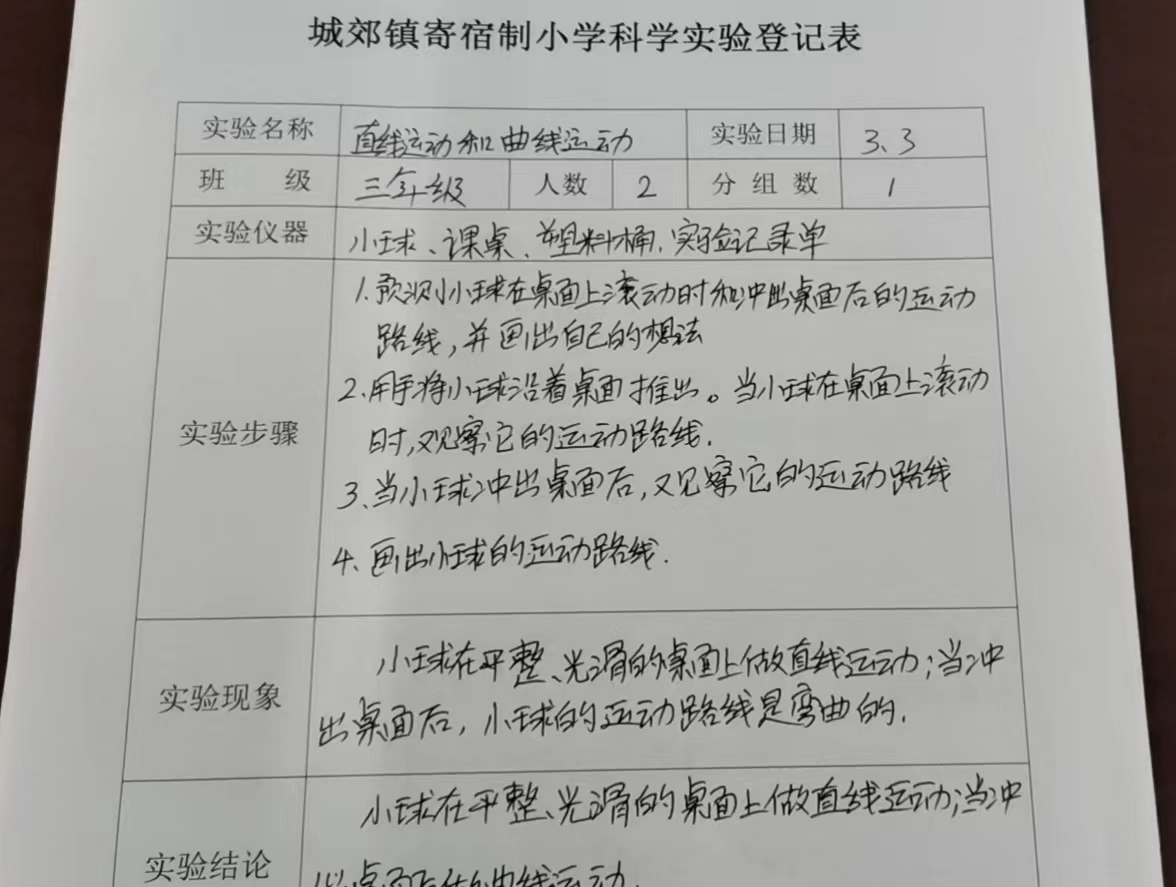 城郊镇寄宿制小学科学实验登记表
实验名称 直线运动和曲线运动 实验日期 3、3
班 级 三年级 人数 2 分组数 1
实验仪器 小球、课桌、塑料桶,实验记录单
1.预测小球在桌面上滚动时和冲出桌面后的运动
路线,并画出自己的想法
2.用手将小球沿着桌面推出。当小球在桌面上滚动
实验步骤
时,观察它的运动路线.
3、当小球冲出桌面后,观察它的运动路线
4、画出小球的运动路线.
小球在平整、光滑的桌面上做直线运动;当冲
实验现象
出桌面后,小球的运动路线是弯曲的.
小球在平整、光滑的桌面上做直线运动;当冲
实验结论
出桌面后做曲线运动.